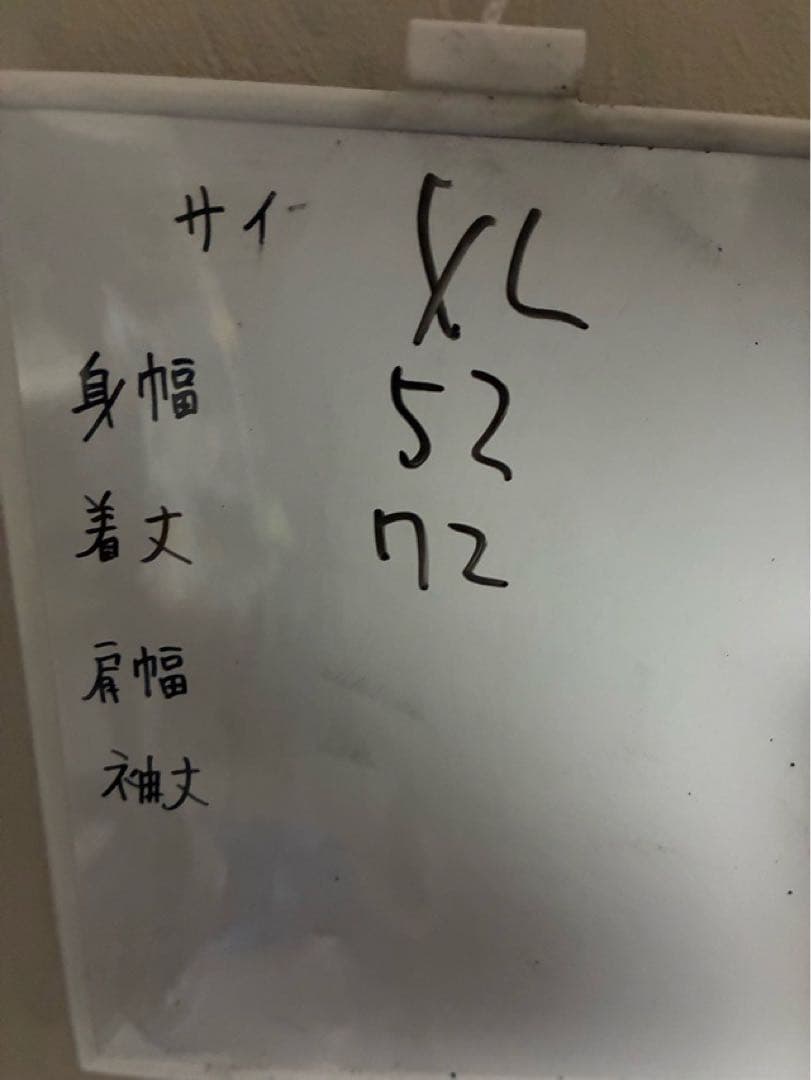 サイ XL
身幅 52
着丈 72
肩幅
袖丈